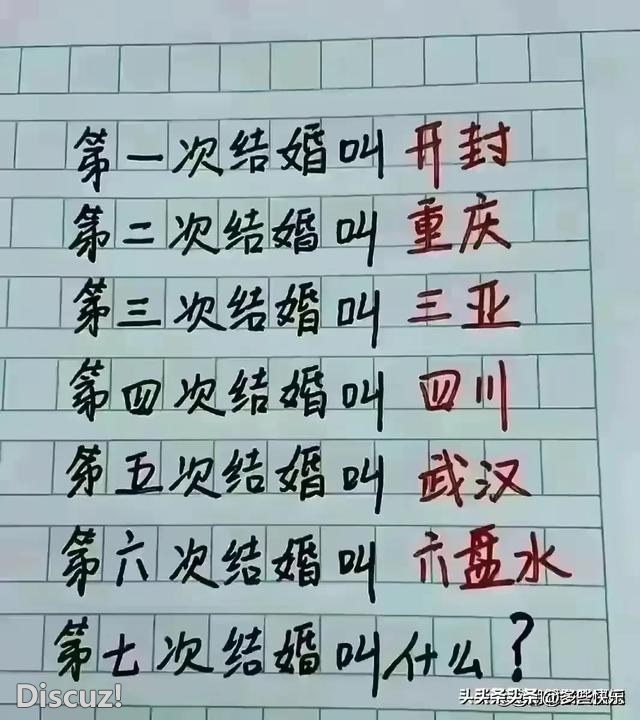 第一次结婚叫 开封
第二次结婚叫 重庆
第三次结婚叫 三亚
第四次结婚叫 四川
第五次结婚叫 武汉
第六次结婚叫 六盘水
第七次结婚叫什么?
Discuz!
头条 @多些快乐